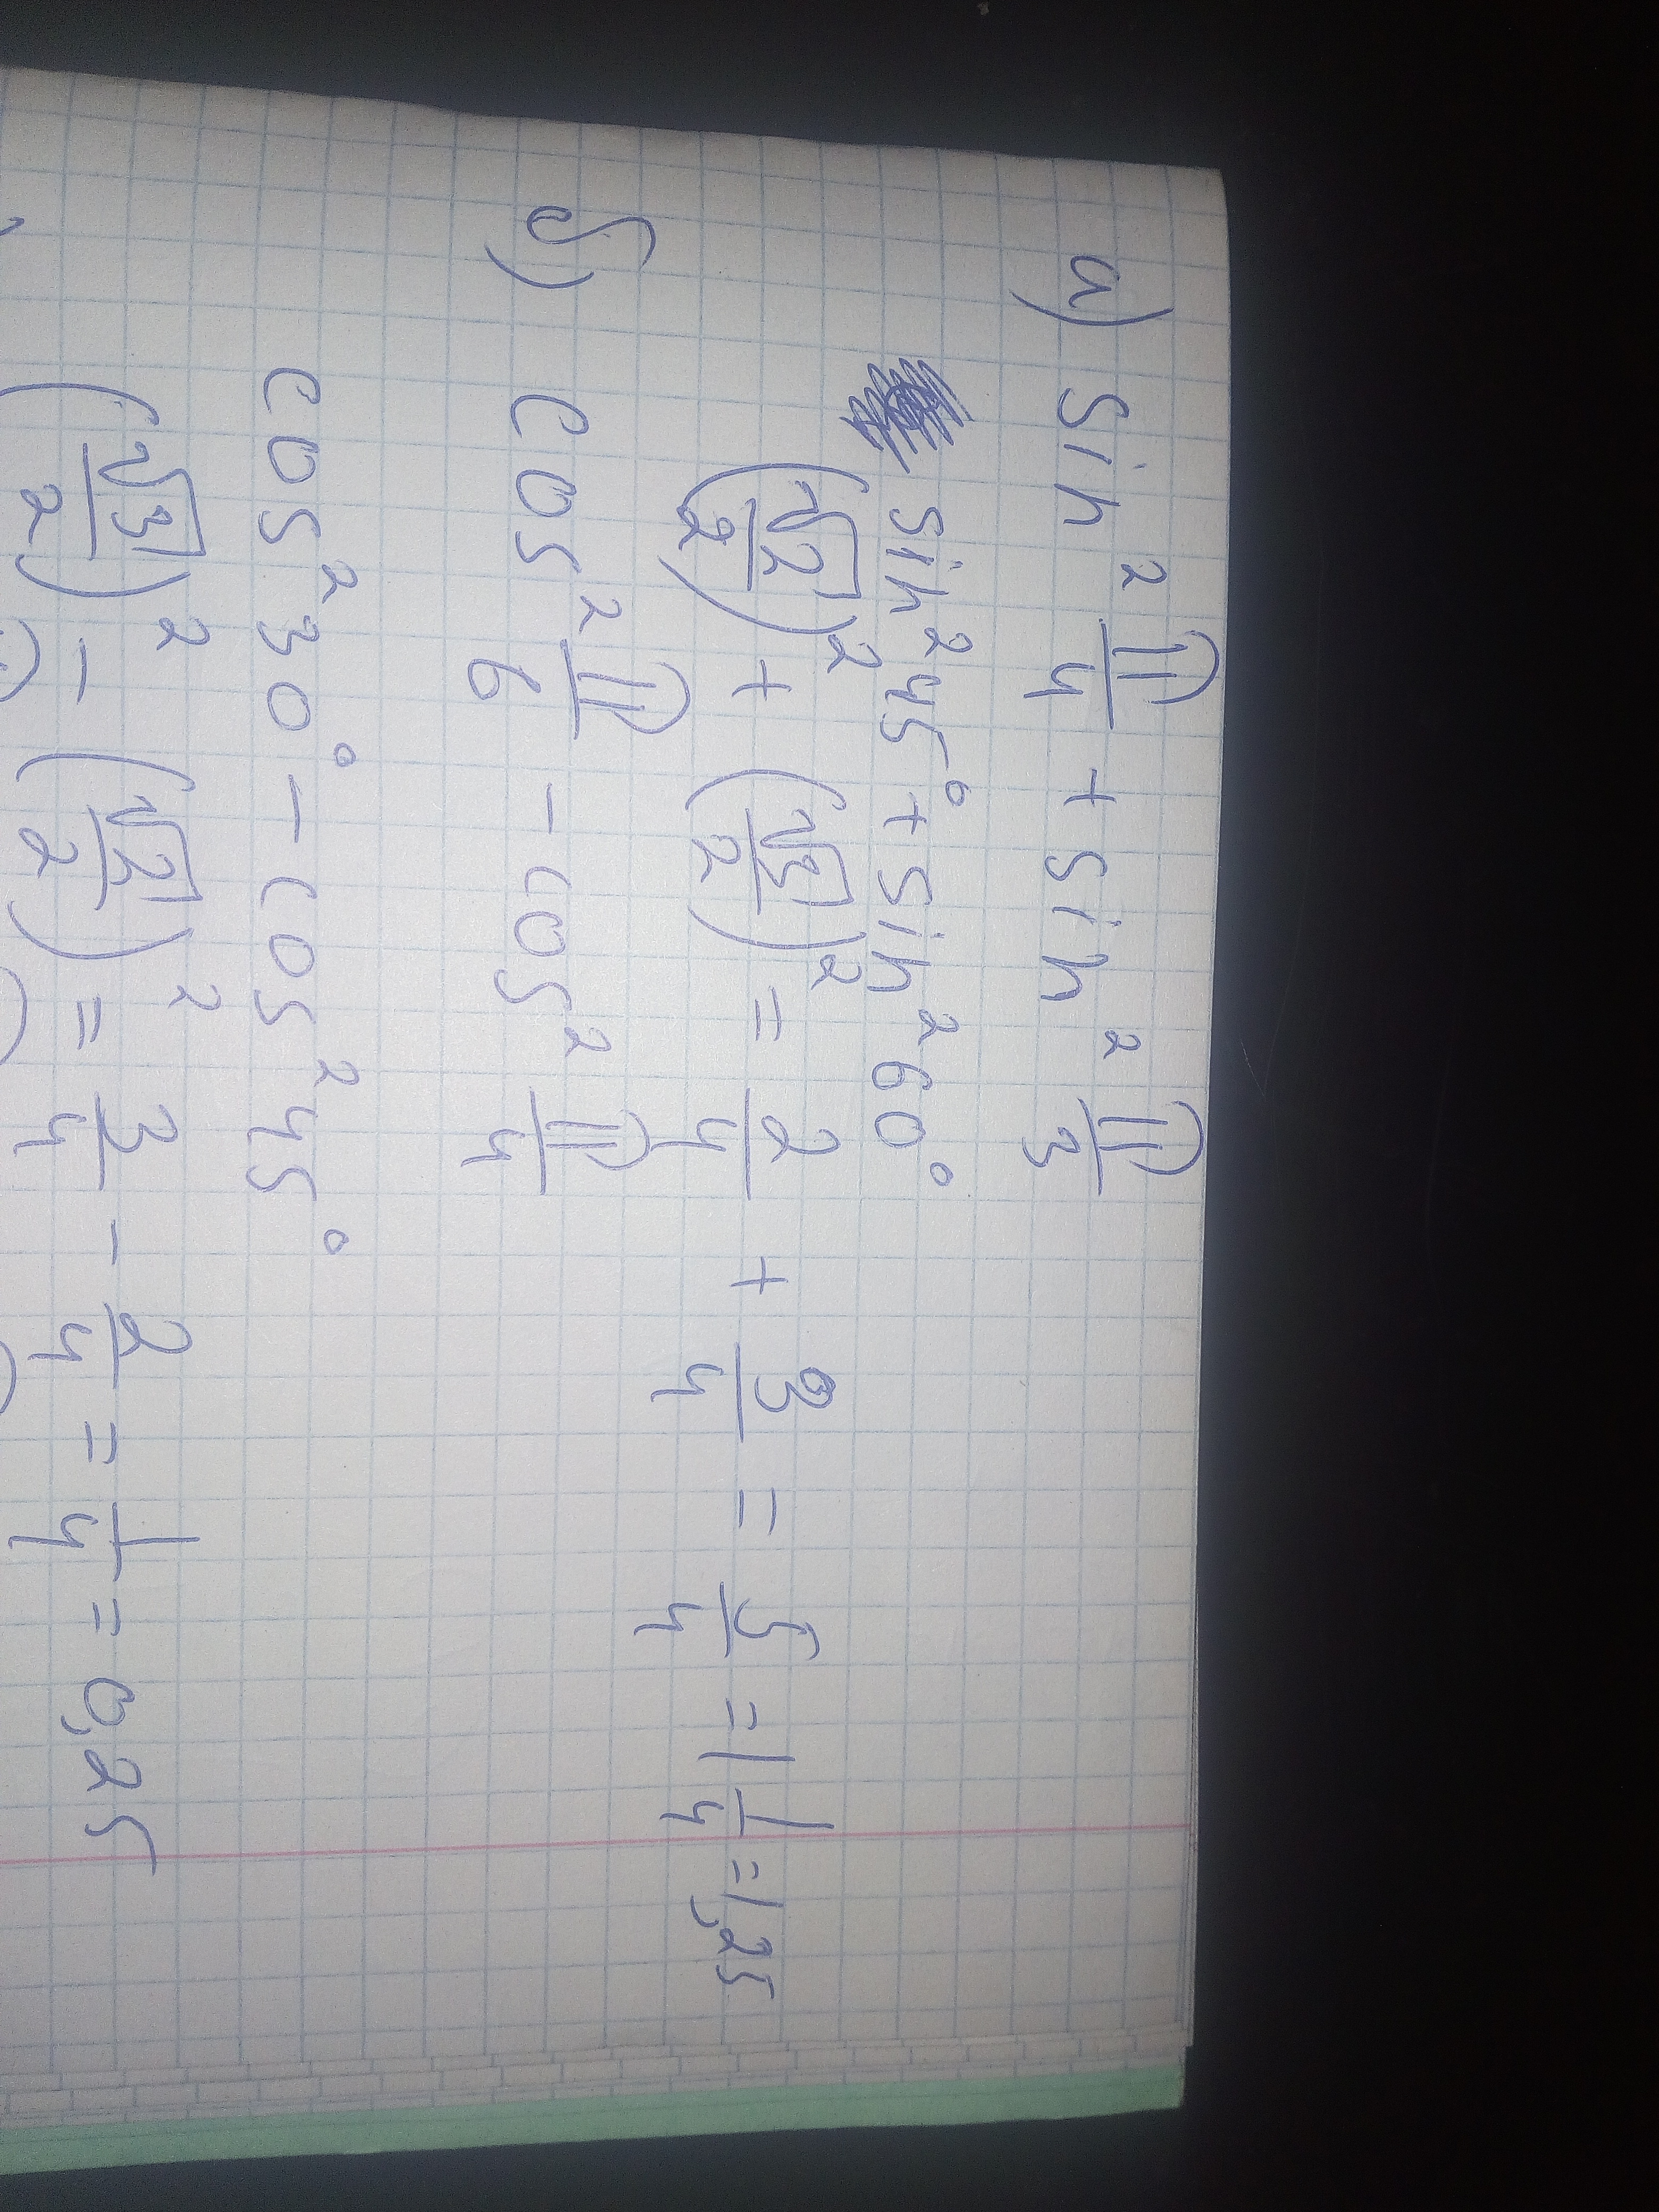 а) sin² π/4 + sin² π/3
sin² 45° + sin² 60°
(√2/2)² + (√3/2)² = 2/4 + 3/4 = 5/4 = 1 1/4 = 1,25
б) cos² π/6 - cos² π/4
cos² 30° - cos² 45°
(√3/2)² - (√2/2)² = 3/4 - 2/4 = 1/4 = 0,25